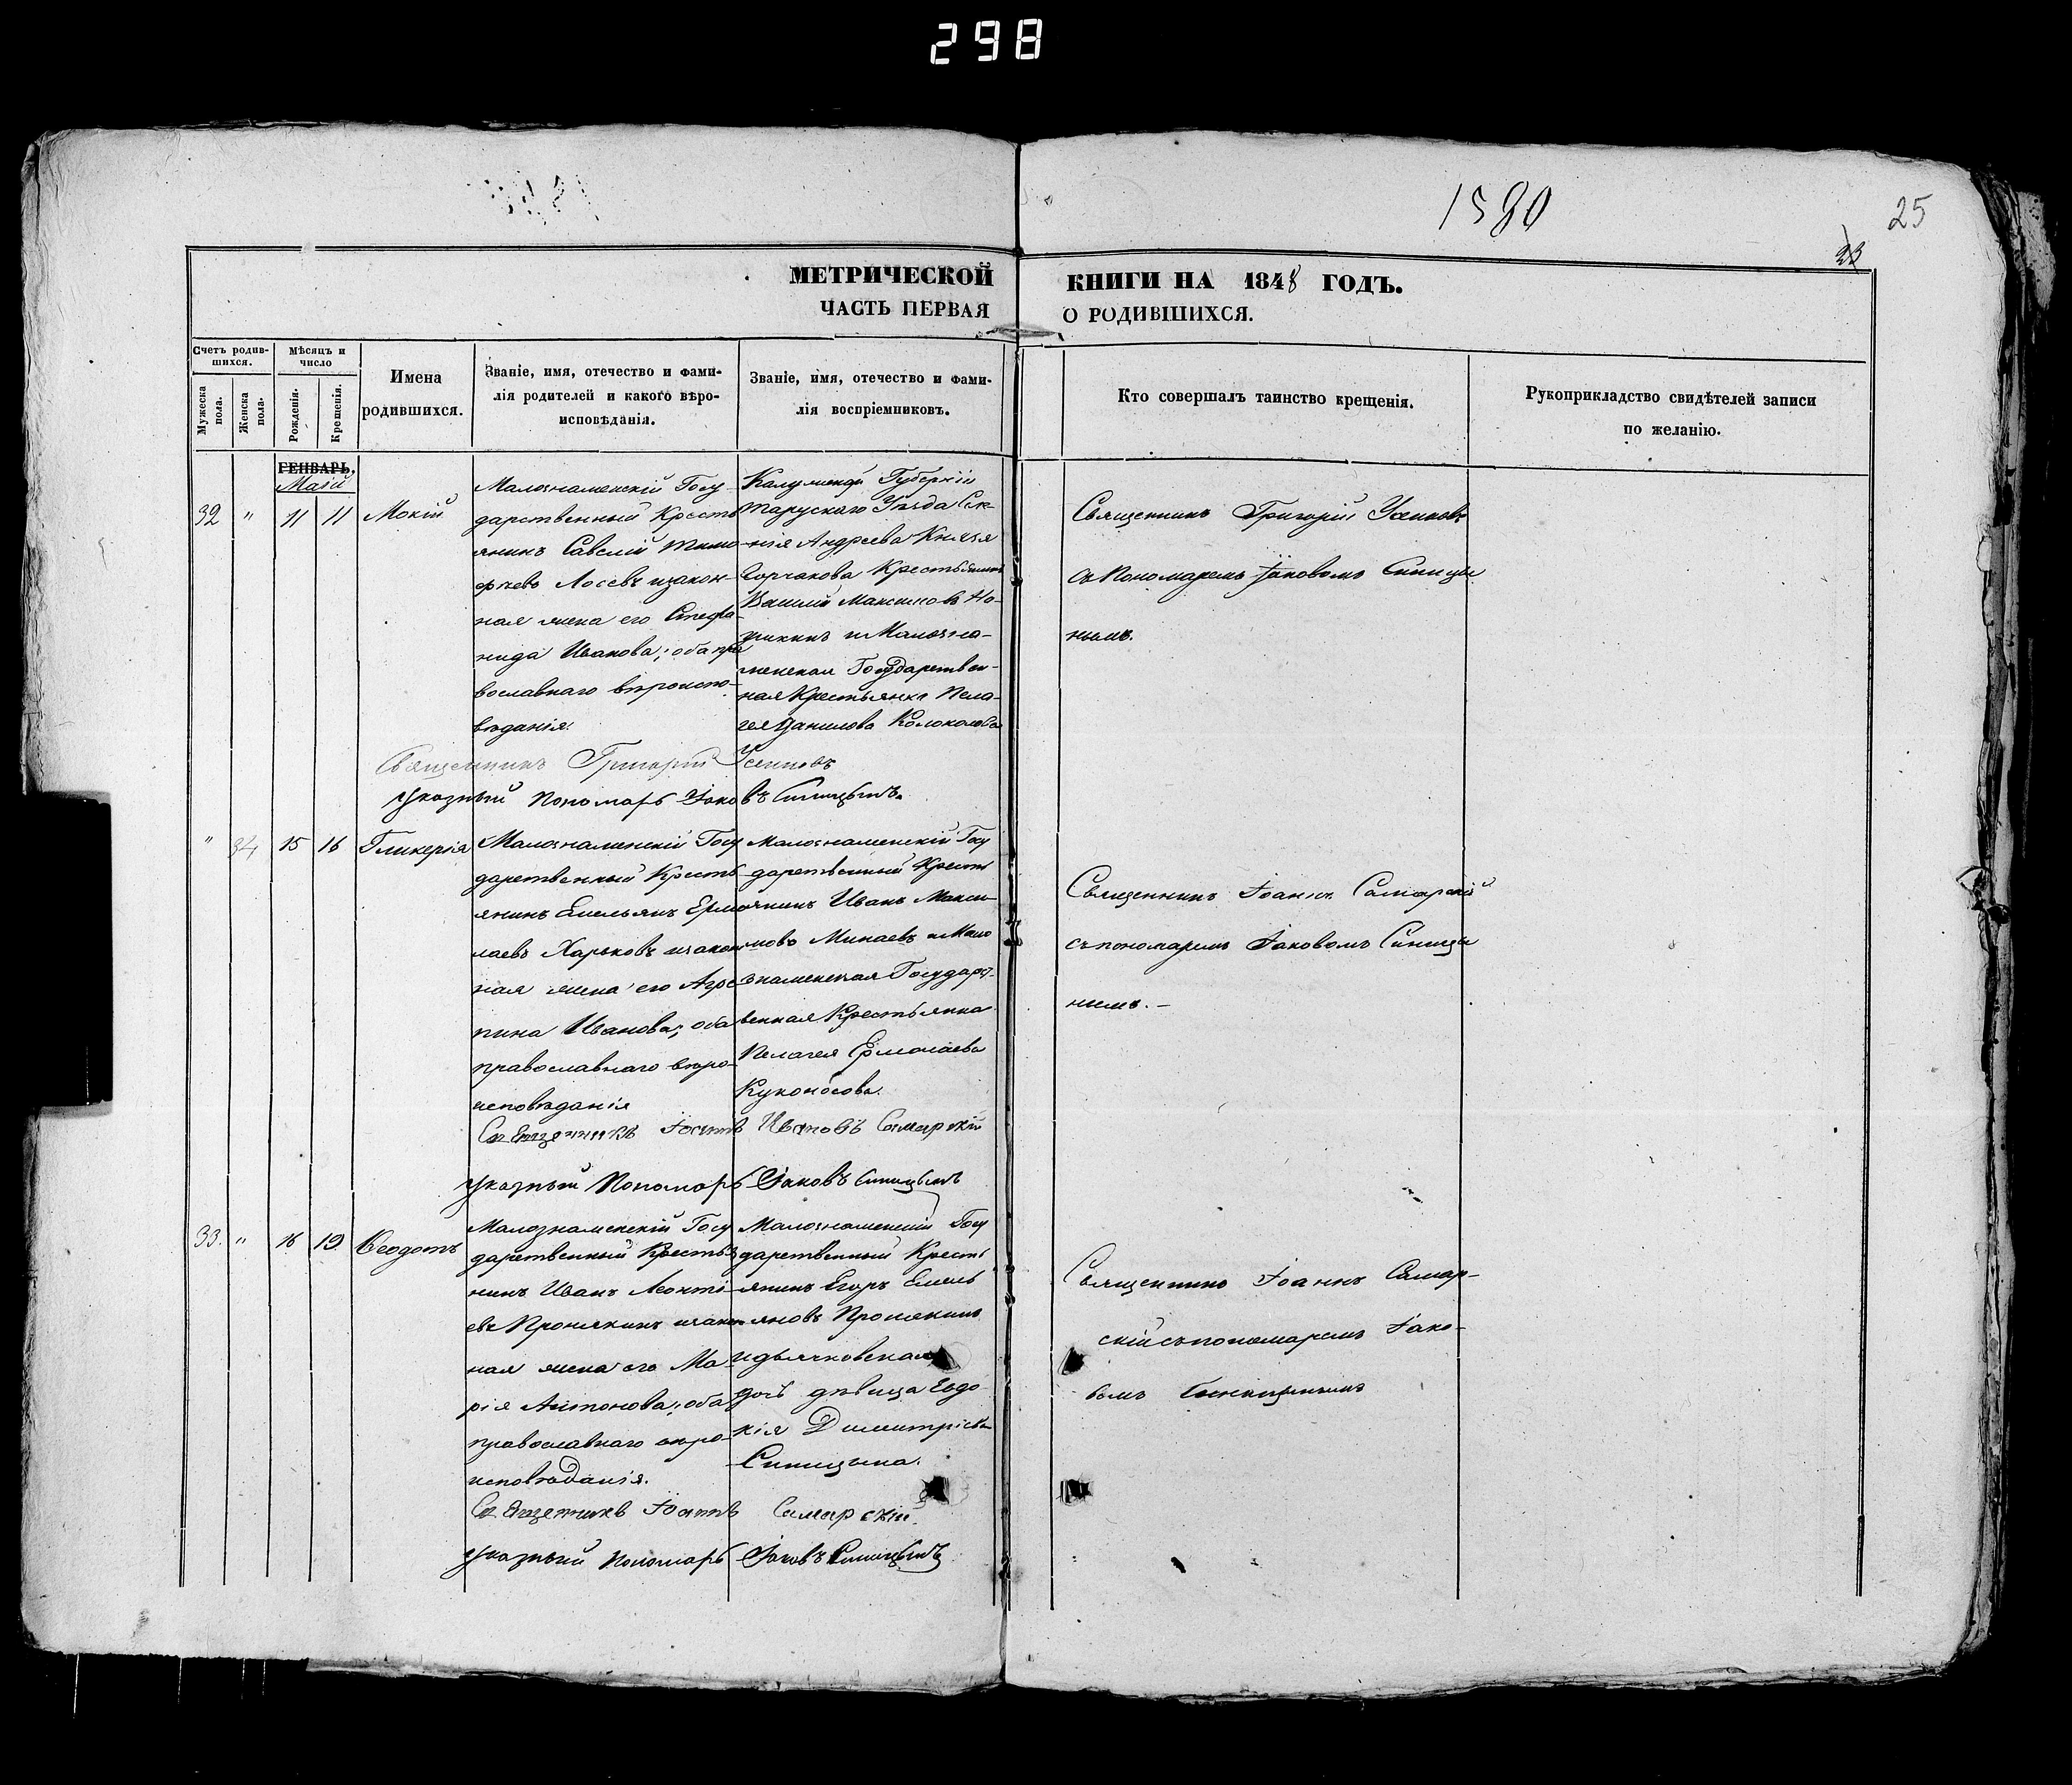 298
1580
25
23
МЕТРИЧЕСКОЙ КНИГИ НА 1848 ГОДЪ.
ЧАСТЬ ПЕРВАЯ О РОДИВШИХСЯ.
Счетъ родив-
шихся.
Мужеска
пола.
Женска
пола.
Мѣсяцъ и
число
Рожденія.
Крещенія.
Имена
родившихся.
Званіе, имя, отечество и фами-
лія родителей и какого вѣро-
исповѣданія.
Званіе, имя, отечество и фами-
лія воспріемниковъ.
Кто совершалъ таинство крещенія.
Рукоприкладство свидѣтелей записи
по желанію.
ГЕНВАРЬ.
Маій
32 " 11 11 Мокій
Малознаменскій Госу-
дарственный Кресть
янинъ Савелій Тимо
фѣевъ Лосевъ изакон-
ная жена его Стефа-
нида Иванова; оба пра
вославнаго вѣроиспо-
вѣданія.
Калужской Губерніи
Тарускаго Уѣзда
Андреева Князя
Горчакова Крестьянинъ
Василій Максимовъ
и Малозна-
менская Государствен-
ная Крестьянка Пела-
гея Данилова Колоколова
Священникъ Григорій Усиковъ
съ Пономаремъ Іаковомъ Синицы
нымъ.
Священникъ Григорій Усиковъ
Указный Пономарь Іаковъ Синицынъ.
" 34 15 16 Гликерія
Малознаменскій Госу
дарственный Кресть
янинъ Емельянъ Ермо
лаевъ Харьковъ изакон
ная жена его Агре
пина Иванова; оба
православнаго вѣро-
исповѣданія
Малознаменскій Госу
дарственный Кресть
янинъ Иванъ Макси-
мовъ Минаевъ и Мало
знаменская Государст-
венная Крестьянка
Пелагея Ермолаева
Куконосова.
Священникъ Іоаннъ Самарскій
съ пономаремъ Іаковомъ Синицы
нымъ.-
Священникъ Іоаннъ Ивановъ Самарскій
Указный Пономарь Іаковъ Синицынъ
33. " 16 19 Ѳеодотъ
Малознаменскій Госу
дарственный Крестья
нинъ Иванъ Леонті-
евъ Пронякинъ изакон
ная жена его Ма-
рія Антонова; оба
православнаго вѣро-
исповѣданія.
Малознаменскій Госу
дарственный Кресть
янинъ Егоръ Емель
яновъ Пронякинъ
идьячковская
дочь дѣвица Евдо-
кія Димитріева
Синицына.
Священникъ Іоаннъ Самар-
скій съ пономаремъ Іако-
вомъ Синицынымъ
Священникъ Іоаннъ Самарскій.
Указный Пономарь Іаковъ Синицынъ